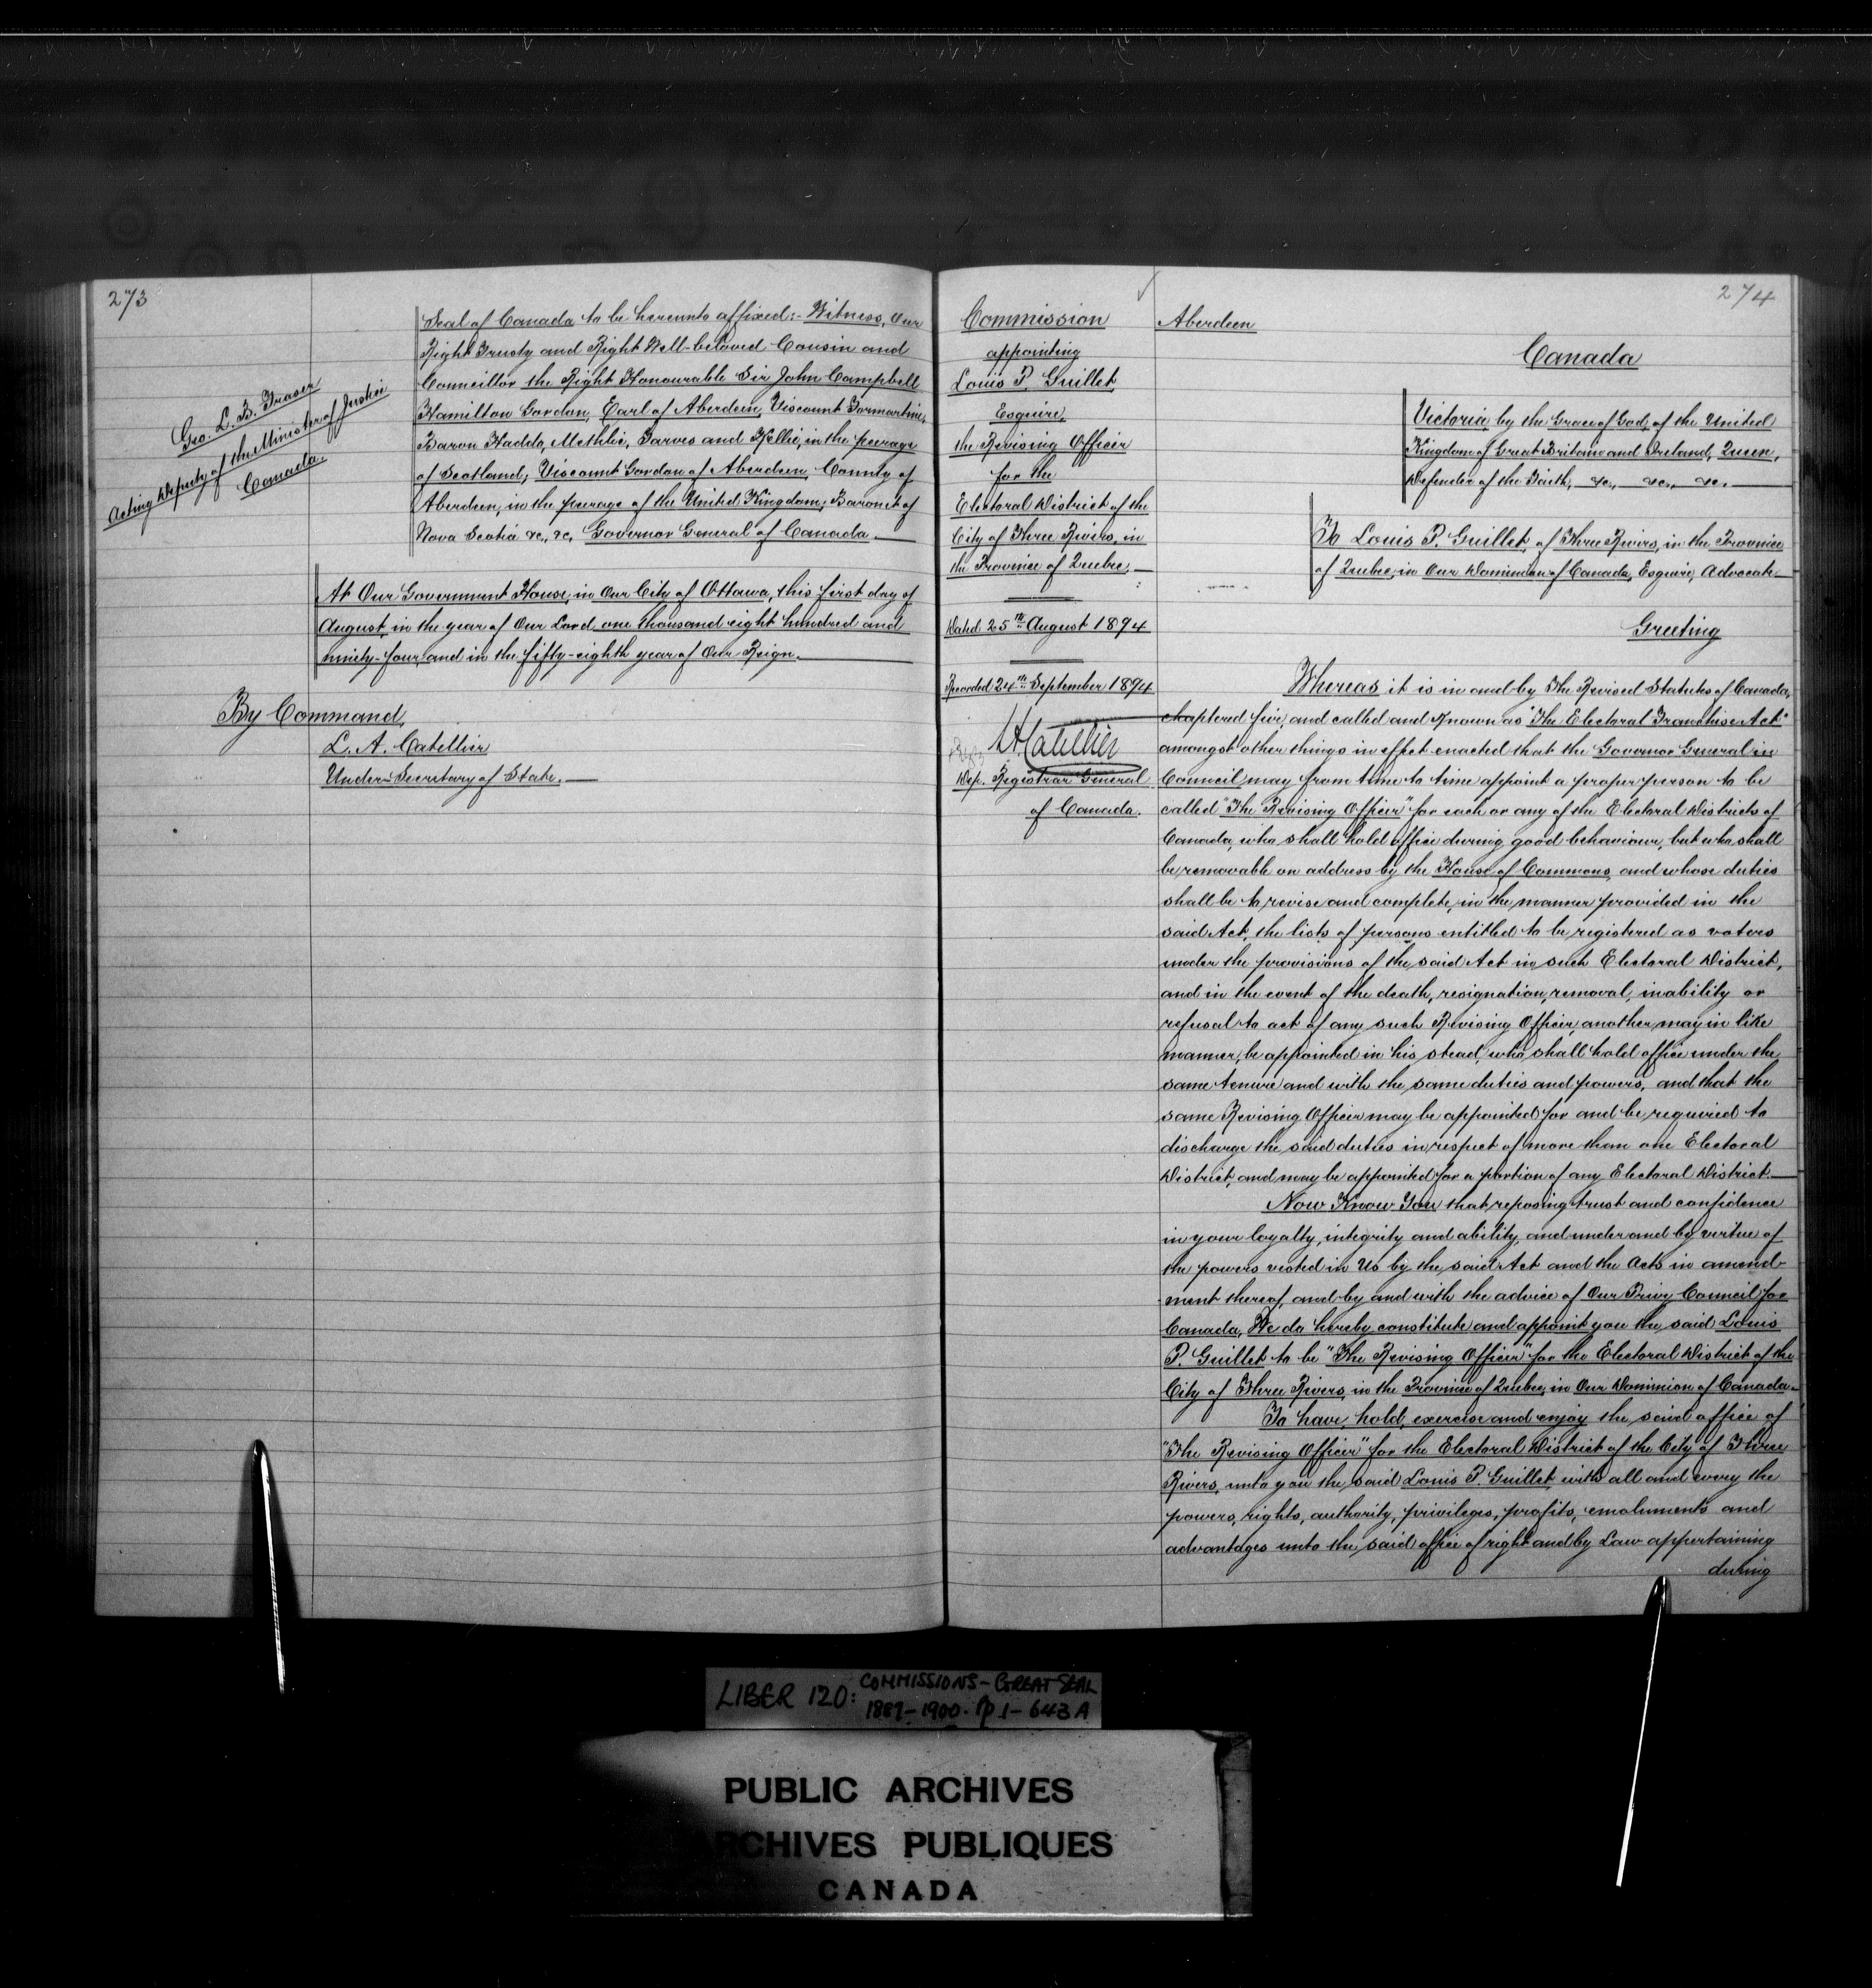 273
Seal of Canada to be hereunto affixed:- Witness, Our
Right Trusty and Right Well-beloved Cousin and
Councillor the Right Honourable Sir John Campbell
Hamilton Gordon, Earl of Aberdeen, Viscount Formartine,
Baron Haddo, Methlic, Tarves and Kellie, in the peerage
of Scotland; Viscount Gordon of Aberdeen, County of
Aberdeen, in the peerage of the United Kingdom; Baronet of
Nova Scotia &c., &c, Governor General of Canada.
Geo. L. B. Fraser
Acting Deputy of the Minister of Justice
Canada.
At Our Government House, in Our City of Ottawa, this first day of
August, in the year of Our Lord one thousand eight hundred and
ninety-four, and in the fifty-eighth year of Our Reign.
By Command,
L. A. Catellier
Under-Secretary of State.
274
Commission
appointing
Louis P. Guillet
Esquire,
the Revising Officer
for the
Electoral District of the
City of Three Rivers, in
the Province of Quebec.
Dated 25th August 1894
Recorded 24th September 1894
LA Catellier
Dep. Registrar General
of Canada.
Aberdeen
Canada
Victoria, by the Grace of God, of the United
Kingdom of Great Britain and Ireland, Queen,
Defender of the Faith, &c., &c., &c.
To Louis P. Guillet, of Three Rivers, in the Province
of Quebec, in Our Dominion of Canada, Esquire, Advocate
Greeting
Whereas it is in and by The Revised Statutes of Canada,
chaptered five, and called and Known as "The Electoral Franchise Act"
amongst other things in effect enacted that the Governor General in
Council may from time to time appoint a proper person to be
called "The Revising Officer" for each or any of the Electoral Districts of
Canada, who shall hold office during good behaviour, but who shall
be removable on address by the House of Commons, and whose duties
shall be to revise and complete, in the manner provided in the
said Act, the lists of persons entitled to be registered as voters
under the provisions of the said Act in such Electoral District,
and in the event of the death, resignation, removal, inability or
refusal to act of any such Revising Officer, another may in like
manner, be appointed in his stead, who shall hold office under the
same tenure and with the same duties and powers, and that the
same Revising Officer may be appointed for and be required to
discharge the said duties in respect of more than one Electoral
District, and may be appointed for a portion of any Electoral District.
Now Know You that reposing trust and confidence
in your loyalty, integrity and ability, and under and by virtue of
the powers vested in Us by the said Act and the Acts in amend-
ment thereof, and by and with the advice of Our Privy Council for
Canada, We do hereby constitute and appoint you the said Louis
P. Guillet to be "The Revising Officer" for the Electoral District of the
City of Three Rivers, in the Province of Quebec, in Our Dominion of Canada.
To have, hold, exercise and enjoy the said office of
"The Revising Officer" for the Electoral District of the City of Three
Rivers, unto you the said Louis P. Guillet, with all and every the
powers, rights, authority, privileges, profits, emoluments and
advantages unto the said office of right and by Law appertaining
during
LIBER 120: COMMISSIONS - GREAT SEAL
1889-1900. pp 1-643A
PUBLIC ARCHIVES
ARCHIVES PUBLIQUES
CANADA